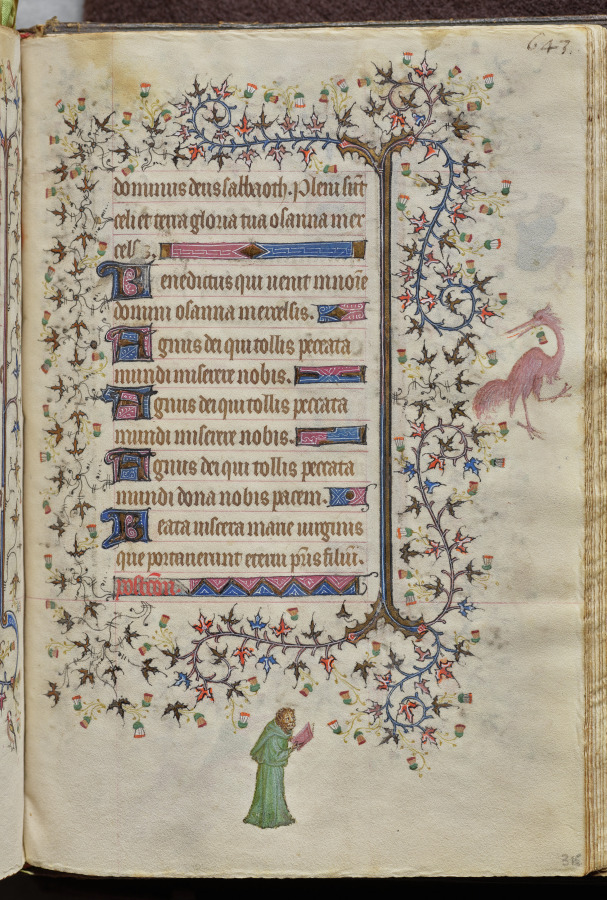 643.
dominus deus sabaoth. Pleni sūt
celi et terra gloria tua osanna in ex
cels
Benedictus qui uenit in noīe
domini osanna in excelsis.
Agnus dei qui tollis peccata
mundi miserere nobis.
Agnus dei qui tollis peccata
mundi miserere nobis.
Agnus dei qui tollis peccata
mundi dona nobis pacem.
Beata uiscera marie uirginis
que portauerunt eterni pr̄is filiū.